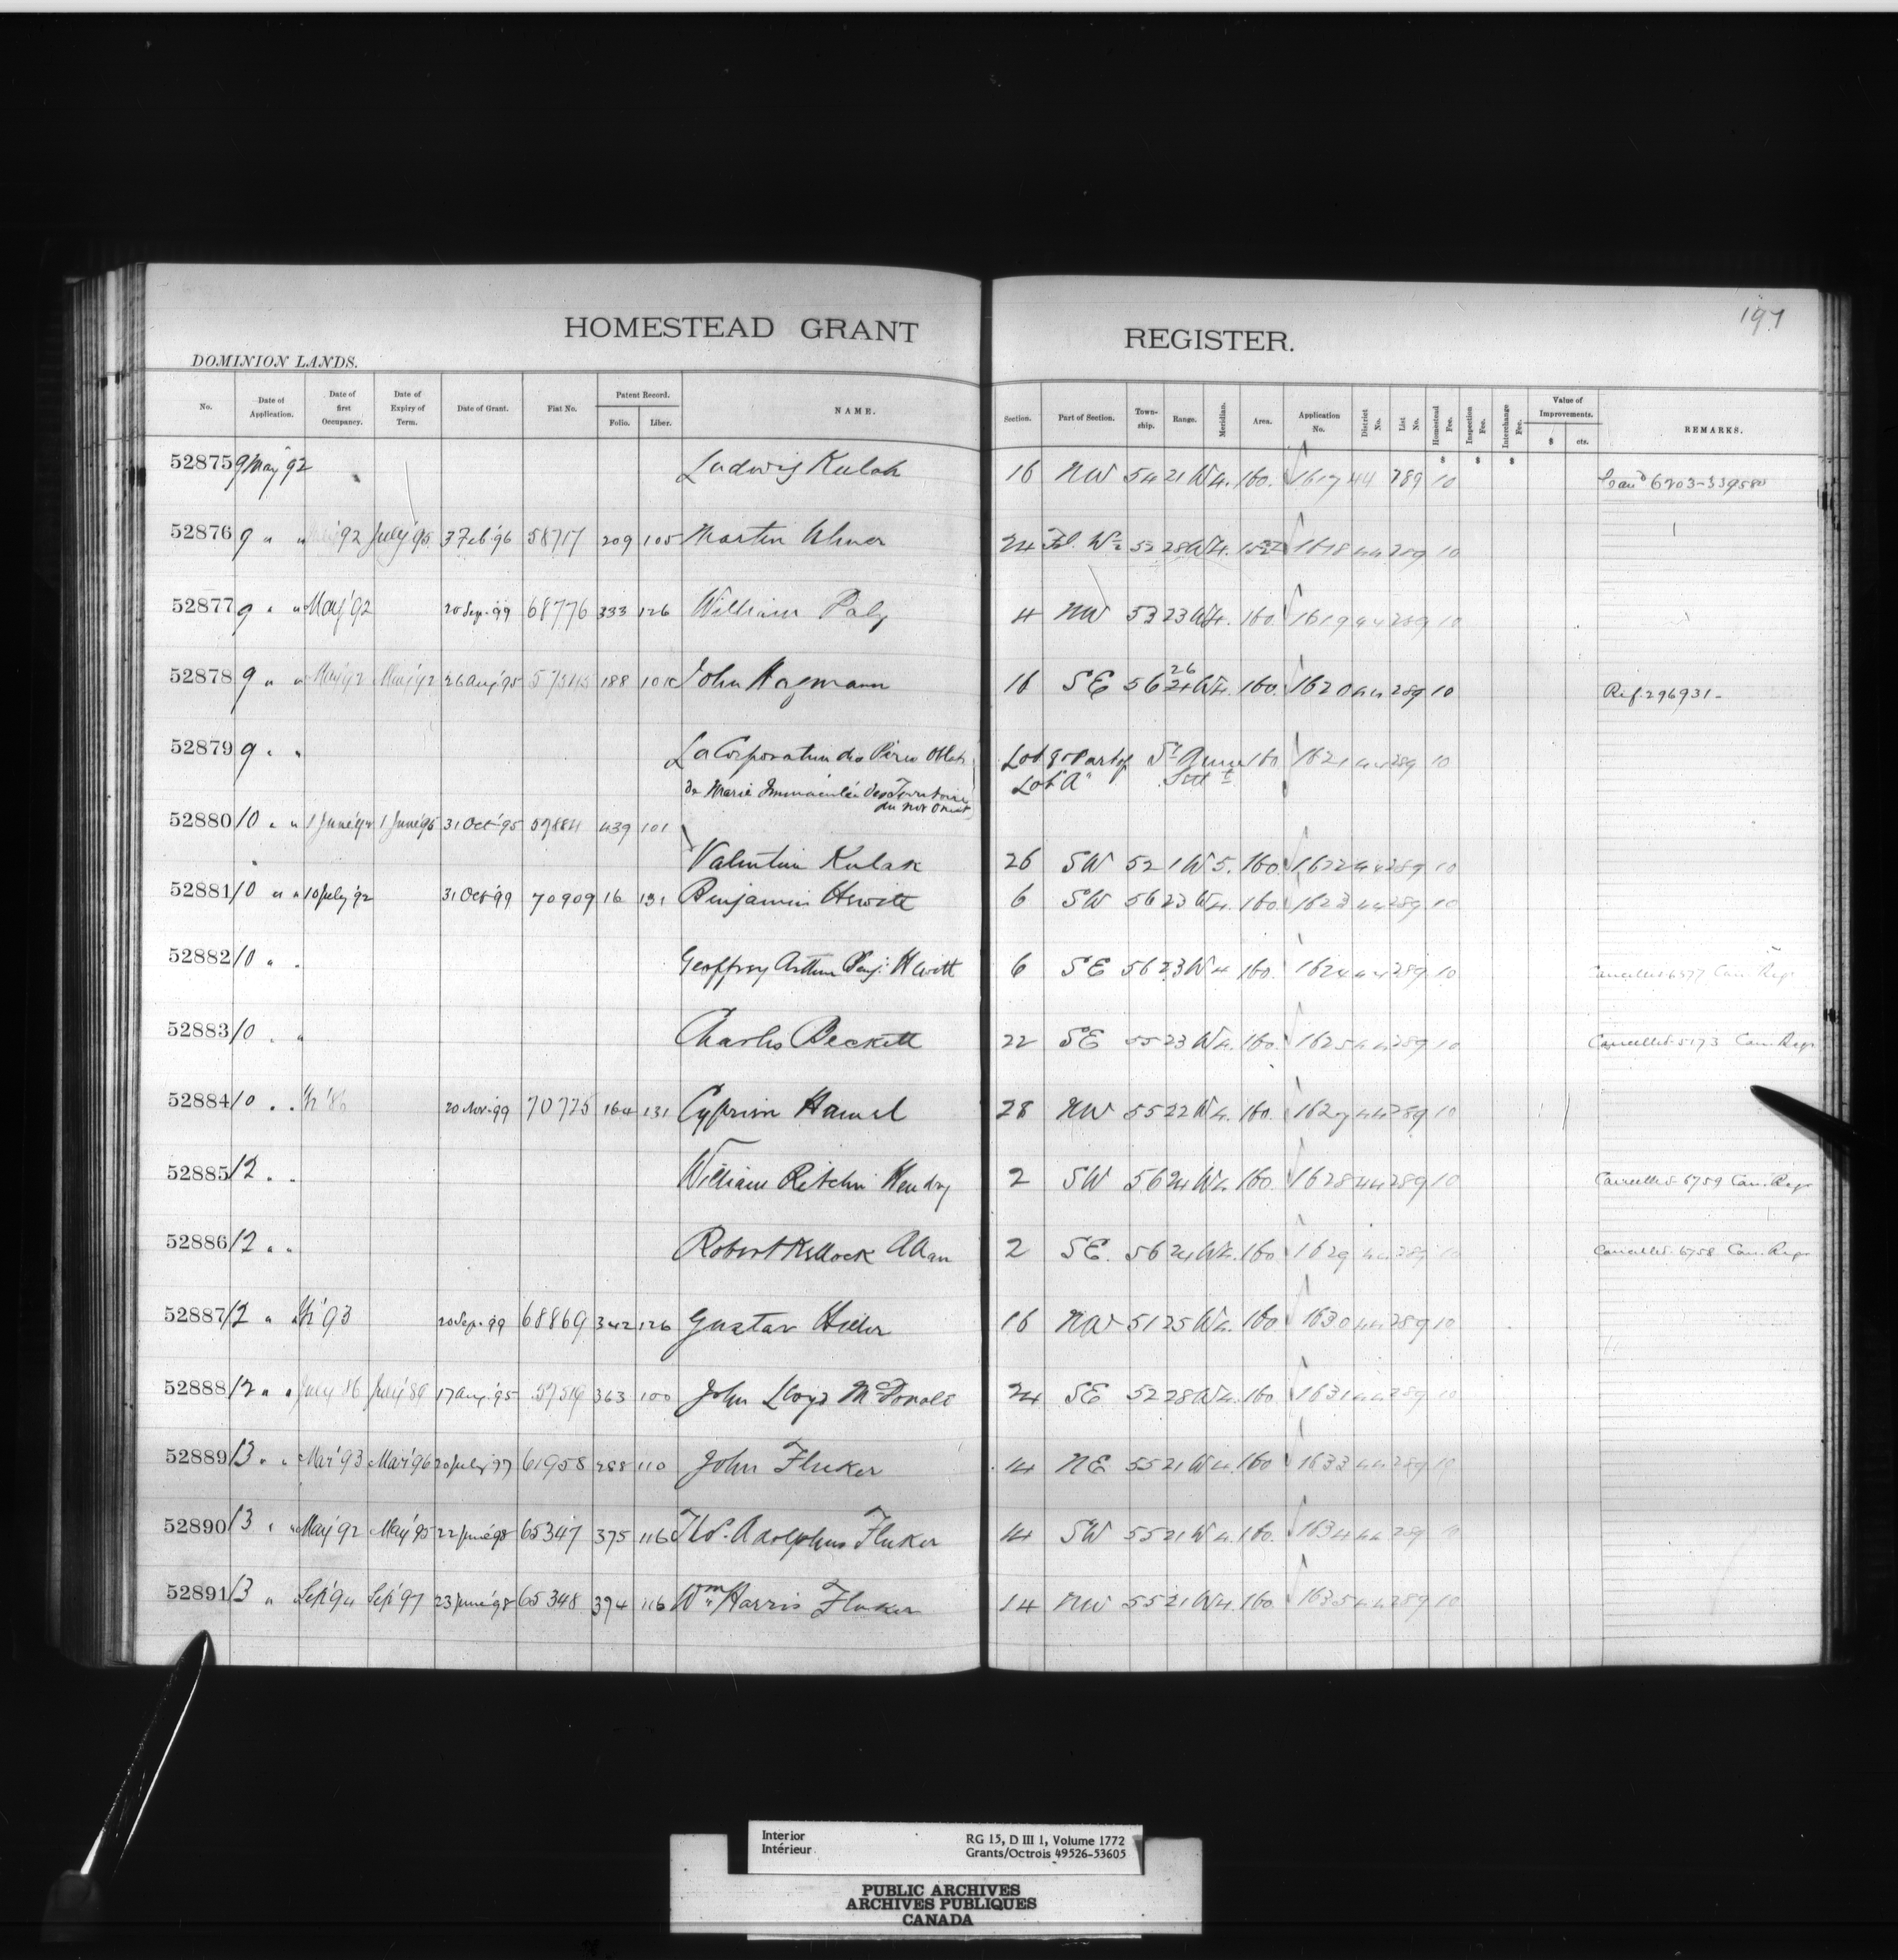 197
HOMESTEAD GRANT REGISTER.
DOMINION LANDS.
No. Date of Application. Date of first Occupancy. Date of Expiry of Term. Date of Grant. Fiat No. Patent Record. Folio. Liber. NAME. Section. Part of Section. Town-ship. Range. Meridian. Area. Application No. District No. List No. Homestead Fee. Inspection Fee. Interchange Fee. Value of Improvements. $ cts. REMARKS.
$ $ $
52875 9 May 92 Ludwig Kulak 16 NW 54 21 W 4. 160. 1617 44 289 10
52876 9 " " '92 July '95 3 Feb '96 58717 209 105 Martin 24 Fl. W½ 52 28 W 4. 1618 44 289 10
52877 9 " " May '92 20 Sep. 99 68776 333 126 William Paly 4 NW 53 23 W 4. 160. 1619 44 289 10
52878 9 " " May '92 26 Aug '95 188 John Hagmann 16 SE 56 26 W 4. 160. 1620 44 289 10 Ref. 296931-
52879 9 " " La Corporation des Pères Oblats Lot 9 & Part of St Anne 160 1621 44 289 10
de Marie Immaculée des Territoires Lot "A" Settt
du Nor Ouest
52880 10 " " 1 June '92 1 June '95 31 Oct '95 57884 439 101
Valentin Kulak 26 SW 52 1 W 5. 160. 1622 44 289 10
52881 10 " " 10 July '92 31 Oct '99 70909 16 131 Benjamin Hewitt 6 SW 56 23 W 4. 160. 1623 44 289 10
52882 10 " " Geoffrey Arthur Benj. Hewitt 6 SE 56 23 W 4 160. 1624 44 289 10 Cancelled 6577 Can. Regr
52883 10 " " Charles Beckett 22 SE 55 23 W 4. 160. 1625 44 289 10 Cancelled 5173 Can. Regr
52884 10 " " '86 20 Nov. 99 70775 164 131 Cyprien Hamel 28 NW 55 22 W 4. 160. 1627 44 289 10
52885 12 " " William Ritchie Hendry 2 SW 56 24 W 4. 160. 1628 44 289 10 Cancelled 6759 Can. Regr
52886 12 " " Robert Kellock Allan 2 SE. 56 24 W 4. 160 1629 44 289 10 Cancelled 6758 Can. Regr
52887 12 " " '93 20 Sep. 99 68869 342 126 Gustav Hiller 16 NW 51 25 W 4. 160. 1630 44 289 10
52888 12 " " July 86 July '89 17 Aug. '95 57519 363 100 John Lloyd McDonald 24 SE 52 28 W 4. 160 1631 44 289 10
52889 13 " " Mar '93 Mar '96 20 July '97 61958 288 110 John Fluker 14 NE 55 21 W 4. 160 1633 44 289 10
52890 13 " " May '92 May '95 22 June '98 65347 375 116 Thos. Adolphus Fluker 14 SW 55 21 W 4. 160. 1634 44 289 10
52891 13 " Sep '94 Sep '97 23 June '98 65348 394 116 Wm Harris Fluker 14 NW 55 21 W 4. 160. 1635 44 289 10
Interior
Intérieur
RG 15, D III 1, Volume 1772
Grants/Octrois 49526-53605
PUBLIC ARCHIVES
ARCHIVES PUBLIQUES
CANADA